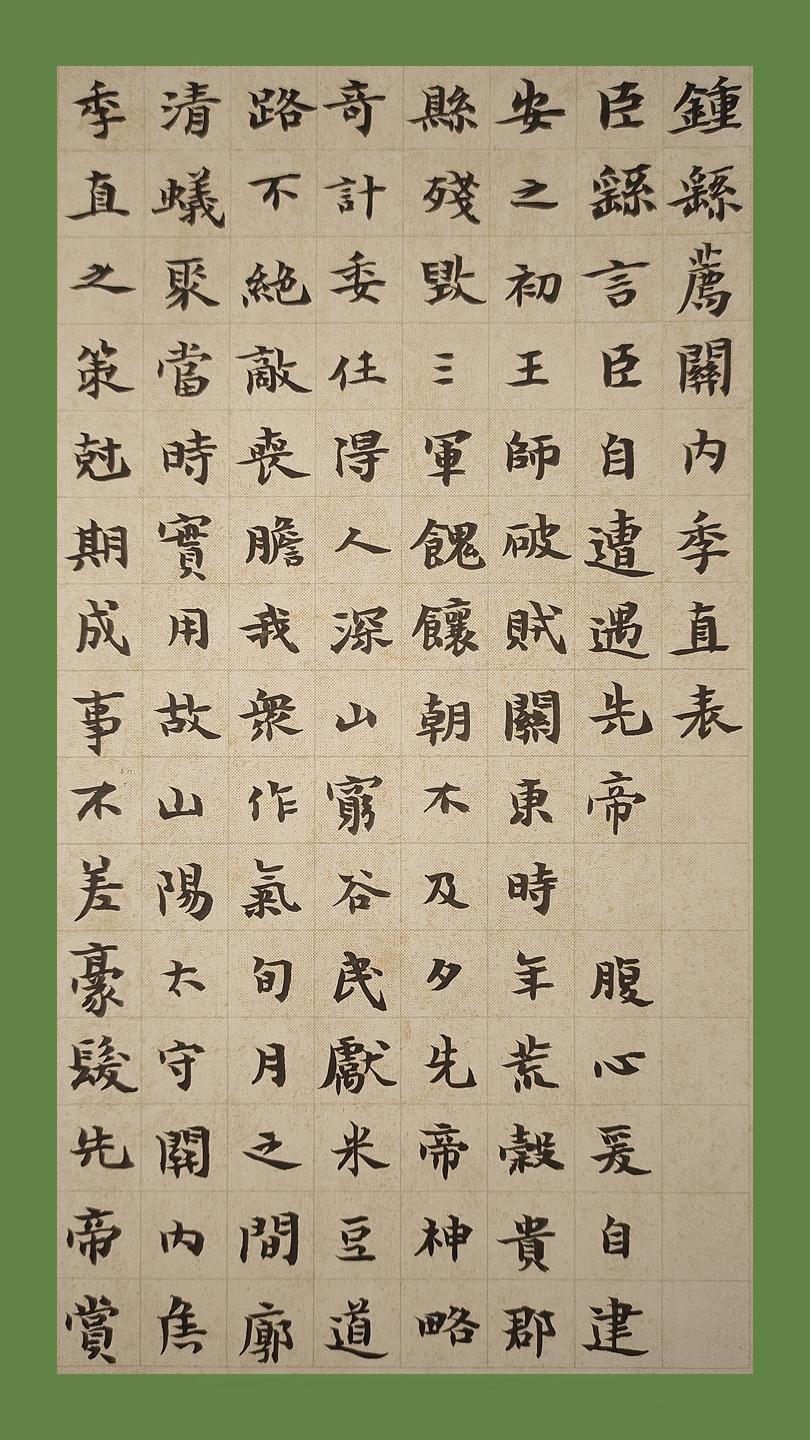 鍾繇薦關内季直表
臣繇言臣自遭遇先帝 腹心爰自建
安之初王師破賊關東時年荒穀貴郡
縣殘毁三軍餽饟朝不及夕先帝神略
奇計委任得人深山窮谷民獻米豆道
路不絶敵喪膽我衆作氣旬月之間廓
清蟻聚當時實用故山陽太守關内侯
季直之策尅期成事不差豪髮先帝賞